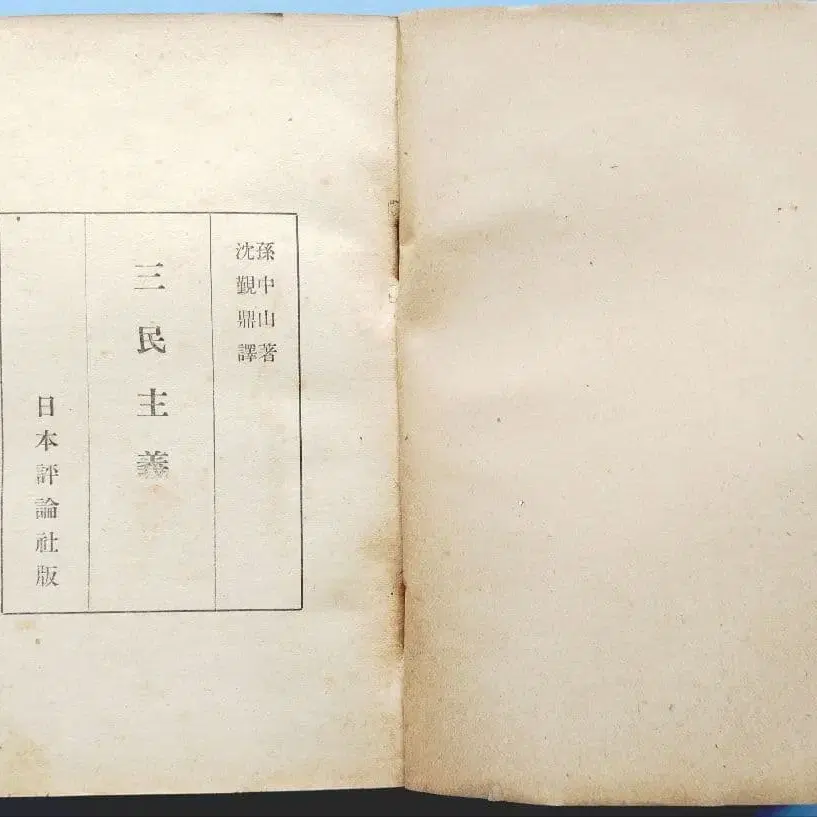 孫中山著
沈覲鼎譯
三民主義
日本評論社版